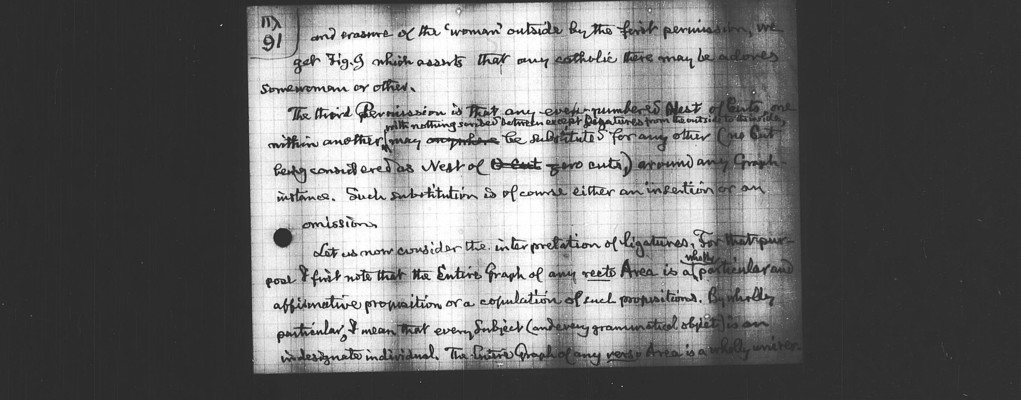 IIX
91
and erasure of the 'woman' outside by the first permission, we
get Fig. 9 which asserts that any catholic there may be adores
some woman or other.
The third Permission is that any even-numbered Nest of Cuts, one
with nothing scribed between except Ligatures from the outside to the inside,
within another, may anywhere be substituted for any other (no Cut
being considered as Nest of 0 cut zero cuts,) around any Graph-
instance. Such substitution is of course either an insertion or an
omission.
Let us now consider the interpretation of ligatures. For that pur-
wholly
pose I first note that the Entire Graph of any recto Area is a particular and
affirmative proposition or a copulation of such propositions. By wholly
particular, I mean that every Subject (and every grammatical object) is an
indesignate individual. The Entire Graph of any verso Area is a wholly univer-